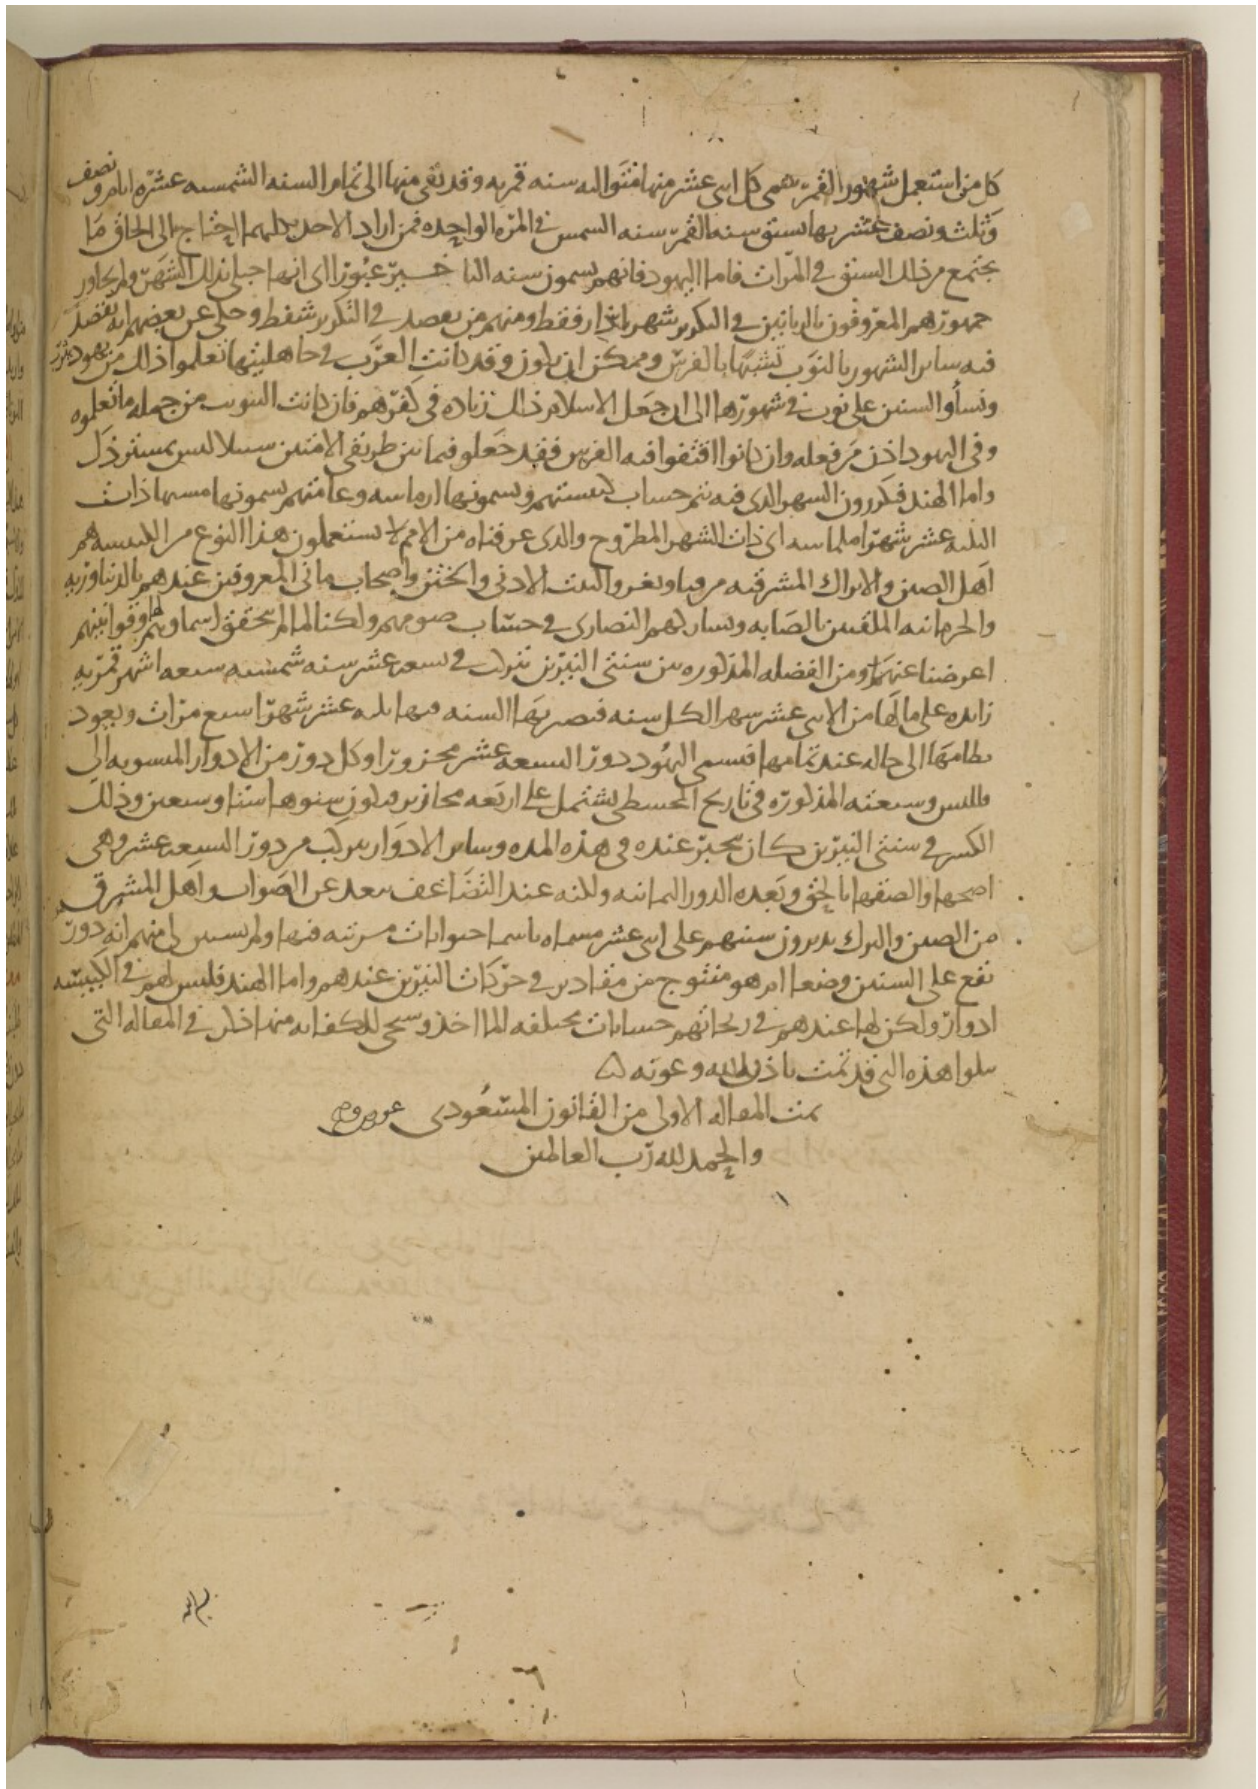 كل من استعمل شهور القمر فهي كل اثنى عشر منها متوالية سنة قمرية وقد بقى منها الى تمام السنة الشمسية عشرة ايام ونصف
وثلث ونصف عشر بها تسبق سنة القمر سنة الشمس في المرة الواحدة فمن اراد الاخذ بكليهما احتاج الى الحاق ما
يجتمع من ذلك السبق في المرات فاما اليهود فانهم يسمون سنة الكبيس عبورا اى انها حبلى بذلك الشهر ولم يجاوز
جمهورهم المعروفون بالربانيين في التكرير شهر اذار فقط ومنهم من يقصد في التكرير شفط وحكى عن بعضهم انه يقصد
فيه سائر الشهور بالنوب تشبها بالفرس وممكن ان يكون وقد كانت العرب في جاهليتها تعلموا ذلك من يهود يثرب
ونسأوا السنين على نوب في شهورها الى ان جعل الاسلام ذلك زيادة في كفرهم فان كانت النوب من جملة ما تعلموه
وفى اليهود اذن من فعله وان كانوا اقتفوا فيه الفرس فقد جعلوا فيما بين طريقى الامتين سبيلا ليس بمستنزل
واما الهند فيكررون الشهر الذى فيه يتم حساب كبيستهم ويسمونها ادماسه وعامتهم يسمونها ملماسه اى ذات
الثلثة عشر شهرا ملماسه اى ذات الشهر المطروح والذى عرفناه من الامم لا يستعملون هذا النوع من الكبيسة هم
اهل الصين والاتراك المشرقية من قبا ويغر والتبت الادنى والختن واصحاب مانى المعروفين عندهم بالديناورية
والحرنانية الملقبين بالصابة ويشاركهم النصارى في حساب صومهم ولكنا لما لم نتحقق اسماؤهم وقوانينهم
اعرضنا عنهم ومن الفضلة المذكورة بين سنتى النيرين يتركب في تسعة عشر سنة شمسية سبعة اشهر قمرية
زايدة على مالها من الاثنى عشر شهرا لكل سنة فتصير بها السنة فيها ثلثة عشر شهرا سبع مرات ويعود
نظامها الى حاله عند تمامها فيسمى اليهود دور التسعة عشر محزورا وكل دور من الادوار المنسوبة الى
قاللبس وسبعته المذكورة في تاريخ المجسطى يشتمل على اربعة محازير فيكون سنوها ستا وسبعين وذلك
الكسر في سنتى النيرين كان يجبر عنده في هذه المدة وسائر الادوار يتركب من دور التسعة عشر وهى
اصحها والصقها بالحق وبعده الدور الثمانية ولكنه عند التضاعف يبعد عن الصواب واهل المشرق
من الصين والترك يديرون سنيهم على اثنى عشر مسماه باسماء حيوانات مرتبة فيها ولم يتبين لى منهم انه دور
يقع على السنين وضعا ام هو منتوج من مقادير في حركات النيرين عندهم واما الهند فليس لهم في الكبيسة
ادوار ولكن لها عندهم في زيجاتهم حسابات مختلفة الماخذ وسيجى للكفاية منه اذكار في المقالة التى
يتلوا هذه التى قد تمت باذن الله وعونه
تمت المقالة الاولى من القانون المسعودى
والحمد لله رب العالمين